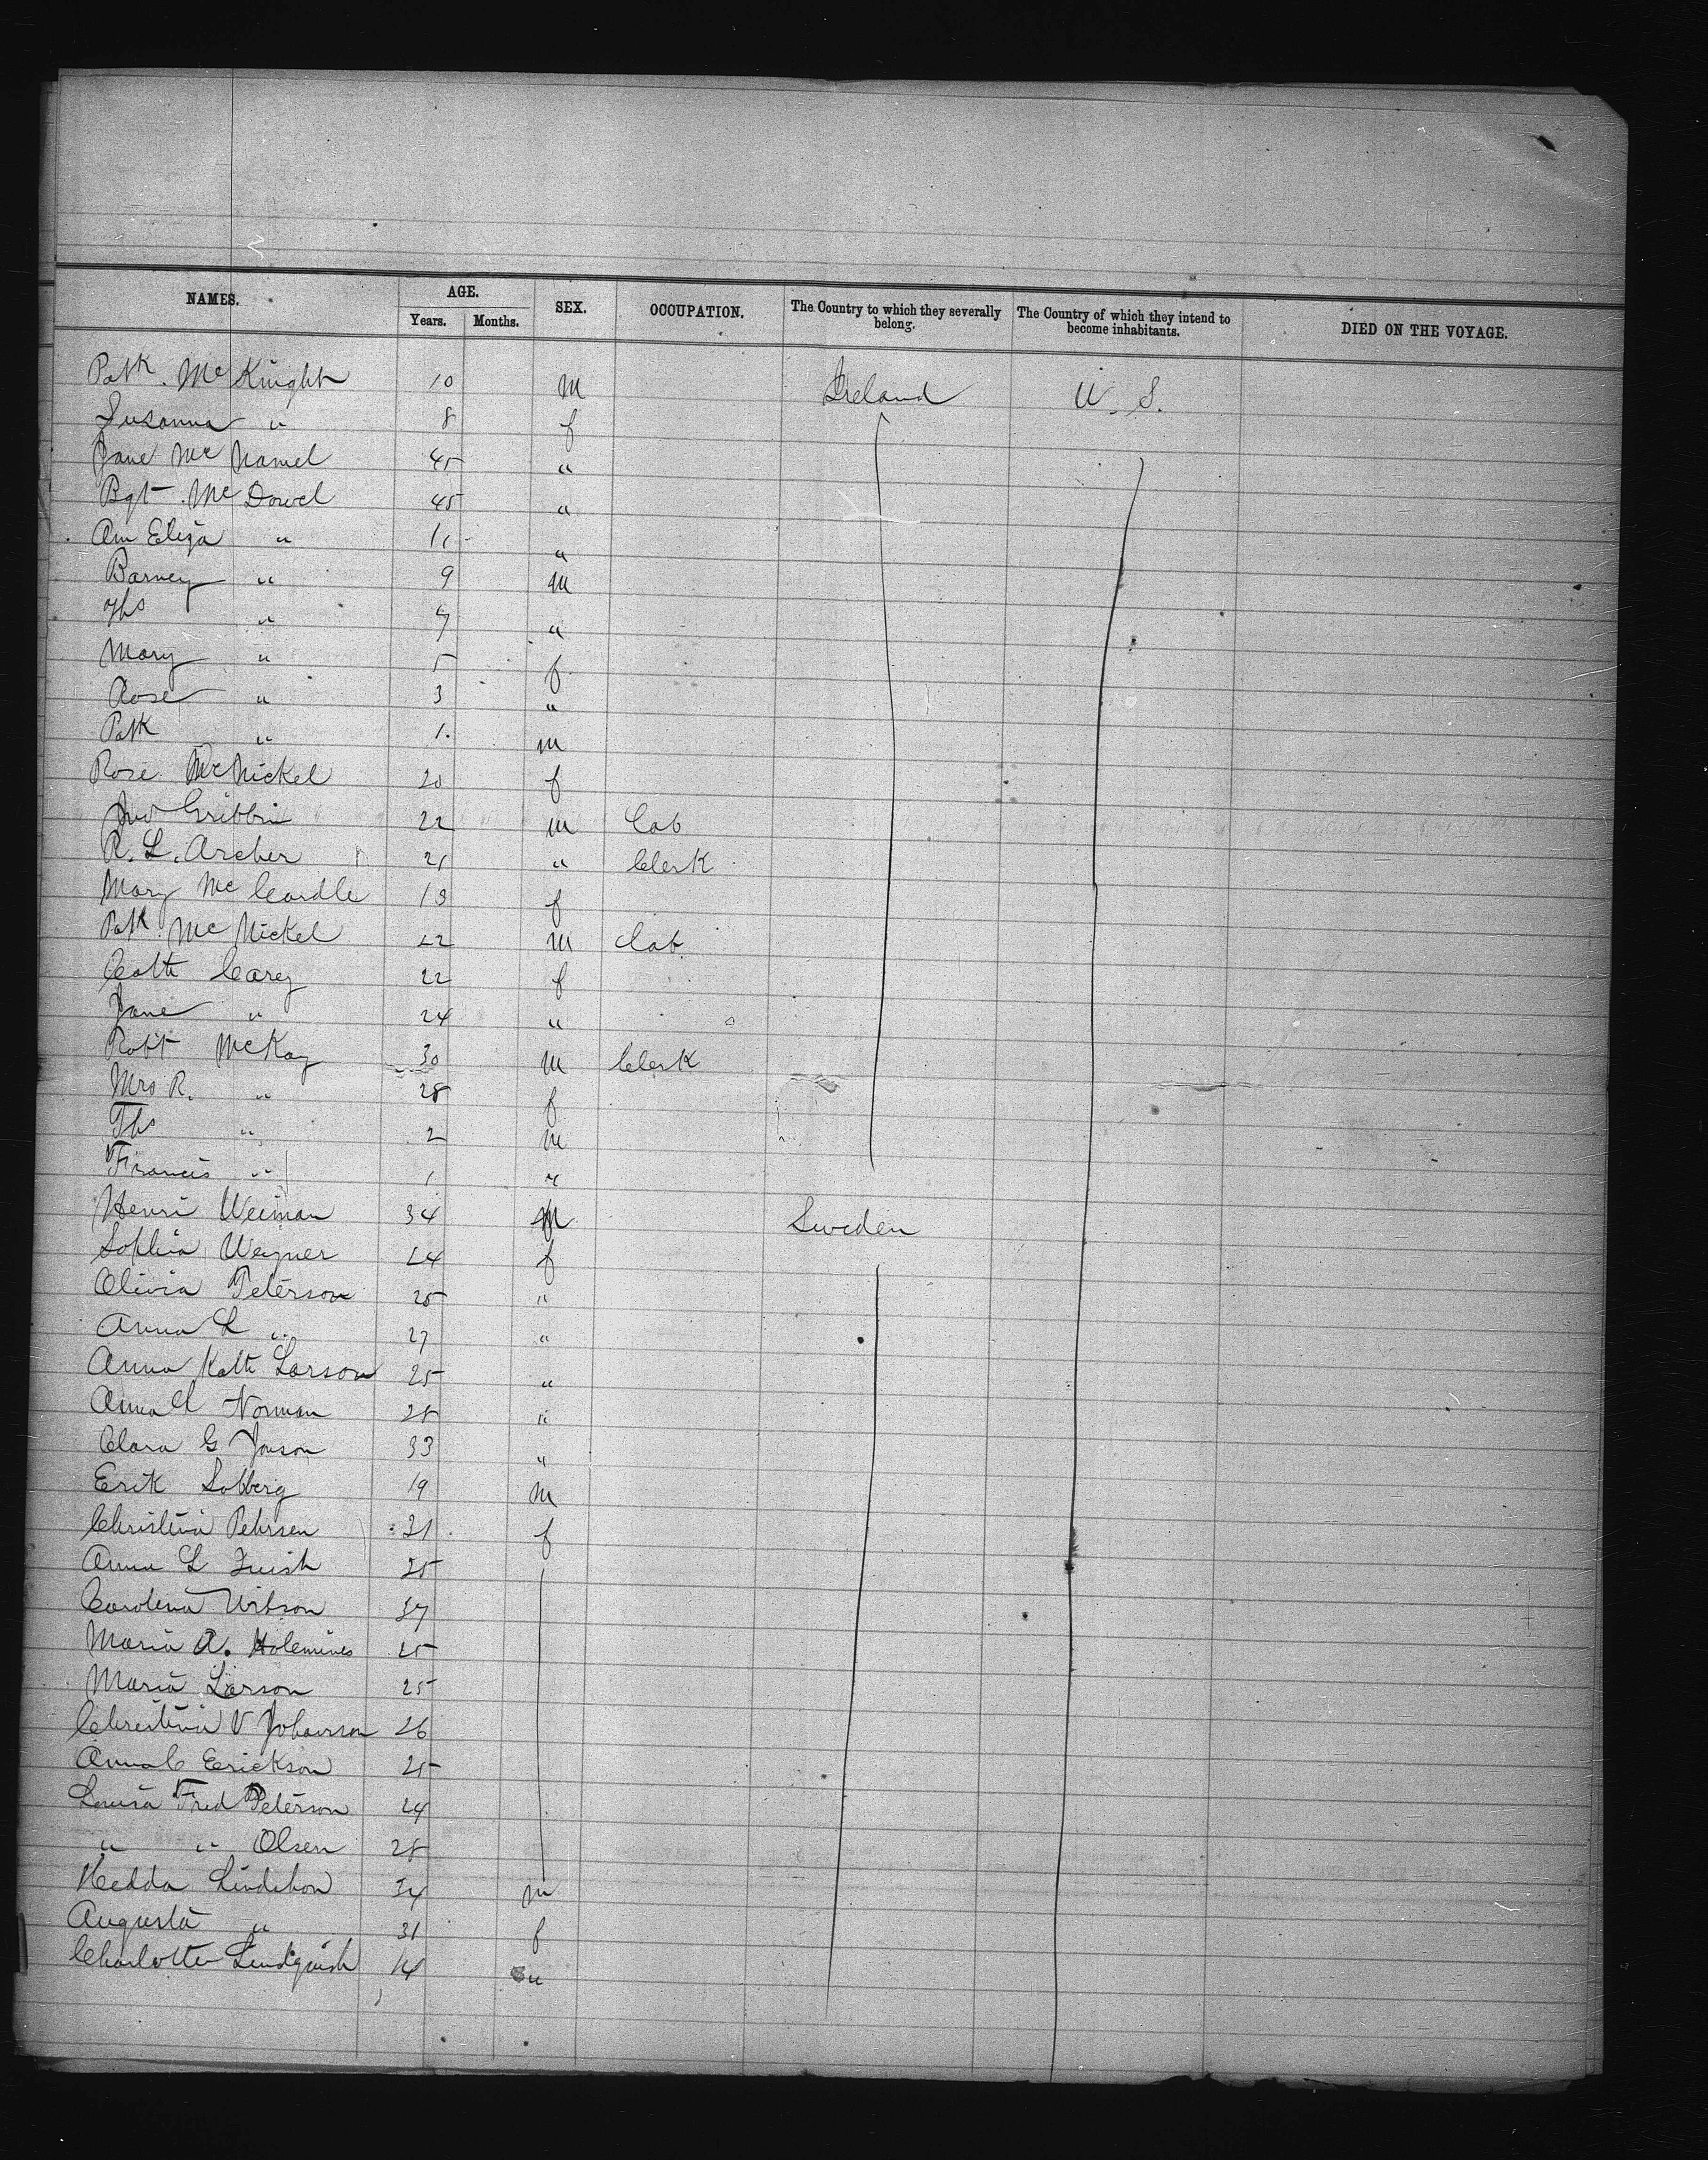 NAMES. AGE. SEX. OCCUPATION. The Country to which they severally belong. The Country of which they intend to become inhabitants. DIED ON THE VOYAGE.
Years. Months.
Patk. McKnight 10 m Ireland U. S.
Susanna " 8 f
Jane McNamel 45 "
Bgt McDowel 45 "
Ann Eliza " 11 "
Barney " 9 m
Ths " 7 "
Mary " 5 f
Rose " 3 "
Patk " 1. m
Rose McNickel 20 f
Jno Gribbin 22 m Lab
R. L. Archer 21 " Clerk
Mary McCardle 18 f
Patk McNickel 22 m Lab
Cath Carey 22 f
Jane " 24 "
Robt McKay 30 m Clerk
Mrs R. " 28 f
Ths " 2 m
Francis " 1 "
Henri Weiman 34 m Sweden
Sophia Weyner 24 f
Olivia Peterson 25 "
Anna L " 27 "
Anna Kath Larson 25 "
Anna Norman 28 "
Clara G Jonson 33 "
Erik Solberg 19 m
Christina Pehrsen 31 f
Anna L 25
Carolina 37
Maria A. 25
Maria Larson 25
Christina V Johanson 26
Anna C Erickson 25
Louisa Fred Peterson 24
" " Olsen 28
Hedda 34 m
Augusta " 31 f
Charlotte Lindquish 14 "